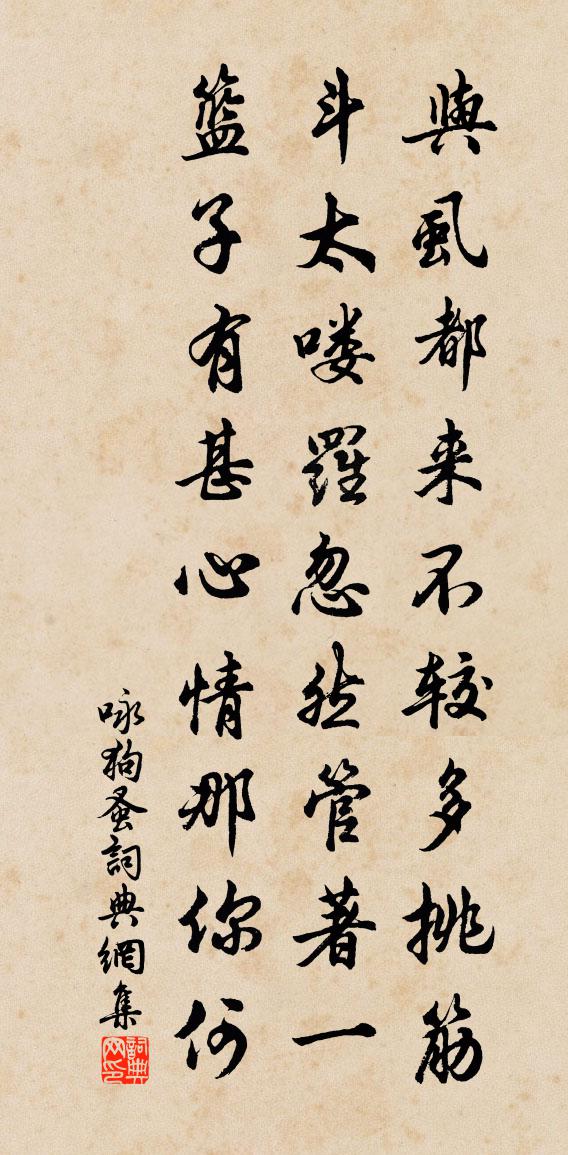 與虱都来不较多挑筋
斗太喽羅忽然管著一
籃子有甚心情那你何
咏狗蚤詞典網集
詞典网印